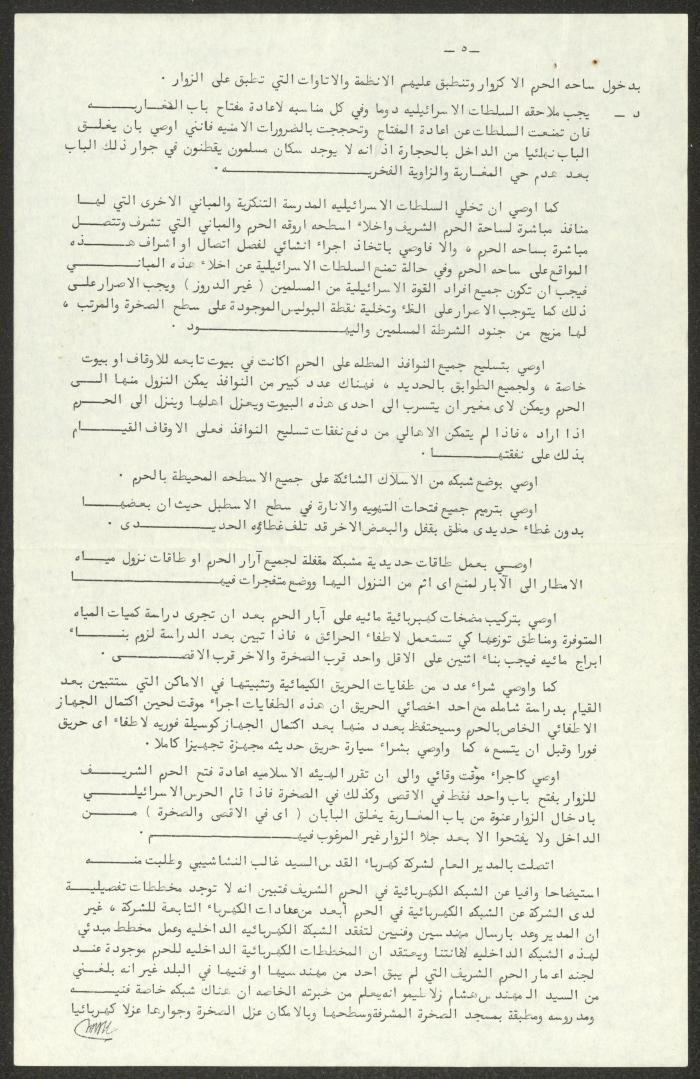 — ٥ —
بدخول ساحه الحرم الا كزوار وتنطبق عليهم الانظمة والاتاوات التي تطبق على الزوار .
د — يجب ملاحقه السلطات الاسرائيليه دوما وفي كل مناسبه لاعادة مفتاح باب المغاربـــــه
فان تمنعت السلطات عن اعادة المفتاح وتحججت بالضرورات الامنيه فانني اوصي بان يغلـــق
الباب نهائيا من الداخل بالحجارة اذ انه لا يوجد سكان مسلمون يقطنون في جوار ذلك الباب
بعد عدم حي المغاربة والزاوية الفخريـــــــــــه .
كما اوصي ان تخلي السلطات الاسرائيليه المدرسة التنكزية والمباني الاخرى التي لهـــا
منافذ مباشرة لساحة الحرم الشريف واخلاء اسطحه اروقه الحرم والمباني التي تشرف وتتصـــل
مباشرة بساحه الحرم ، والا فاوصي باتخاذ اجراء انشائي لفصل اتصال او اشراف هـــــذه
المواقع على ساحه الحرم وفي حالة تمنع السلطات الاسرائيلية عن اخلاء هذه المبانـــــي
فيجب ان تكون جميع افراد القوة الاسرائيلية من المسلمين ( غير الدروز ) ويجب الاصرار علـــى
ذلك كما يتوجب الاصرار على وتخلية نقطة البوليس الموجودة على سطح الصخرة والمرتب ،
لها مزيج من جنود الشرطة المسلمين واليهـــــــــــود .
اوصي بتسليح جميع النوافذ المطله على الحرم اكانت في بيوت تابعه للاوقاف او بيوت
خاصة ، ولجميع الطوابق بالحديد ، فهناك عدد كبير من النوافذ يمكن النزول منها الـــى
الحرم ويمكن لاى مغير ان يتسرب الى احدى هذه البيوت ويعزل اهلها وينزل الى الحـــرم
اذا اراد ، فاذا لم يتمكن الاهالي من دفع نفقات تسليح النوافذ فعلى الاوقاف القيـــام
بذلك على نفقتهـــــــا .
اوصي بوضع شبكه من الاسلاك الشائكة على جميع الاسطحه المحيطة بالحرم .
اوصي بترميم جميع فتحات التهويه والانارة في سطح الاسطبل حيث ان بعضهـــــا
بدون غطاء حديدى مغلق بقفل والبعض الاخر قد تلف غطاؤه الحديـــــــدى .
اوصـي بعمل طاقات حديدية مشبكة مقفلة لجميع آرار الحرم او طاقات نزول ميـــاه
الامطار الى الآبار لمنع اى اثم من النزول اليها ووضع متفجرات فيهـــــــــا
اوصي بتركيب مضخات كهربائية مائيه على آبار الحرم بعد ان تجرى دراسة كميات المياه
المتوفرة ومناطق توزعها كي تستعمل لاطفاء الحرائق ، فاذا تبين بعد الدراسة لزوم بنـــــاء
ابراج مائيه فيجب بناء اثنين على الاقل واحد قرب الصخرة والاخر قرب الاقصـــــى .
كما واوصي شراء عدد من طفايات الحريق الكيمائية وتثبيتها في الاماكن التي ستتبين بعد
القيام بدراسة شامله مع احد اخصائي الحريق ان هذه الطفايات اجراء موقت لحين اكتمال الجهاز
الاطفائي الخاص بالحرم وسيحتفظ بعدد منها بعد اكتمال الجهاز كوسيلة فوريه لاطفاء اى حريق
فورا وقبل ان يتسع ، كما واوصي بشراء سيارة حريق حديثه مجهزة تجهيزا كاملا .
اوصي كاجراء موقت وقائي والى ان تقرر الهيئه الاسلاميه اعادة فتح الحرم الشريـــف
للزوار بفتح باب واحد فقط في الاقصى وكذلك في الصخرة فاذا قام الحرس الاسرائيلـــــي
بادخال الزوار عنوة من باب المغاربة يغلق البابان ( اى في الاقصى والصخرة ) مـــــن
الداخل ولا يفتحوا الا بعد جلاء الزوار غير المرغوب فيهـــــــــــم .
اتصلت بالمدير العام لشركة كهرباء القدس السيد غالب النشاشيبي وطلبت منـــــه
استيضاحا وافيا عن الشبكه الكهربائية في الحرم الشريف فتبين انه لا توجد مخططات تفصيليـــة
لدى الشركة عن الشبكه الكهربائية في الحرم أبعد من عدادات الكهرباء التابعة للشركة ، غير
ان المدير وعد بارسال مهندسين وفنيين لتفقد الشبكة الكهربائيه الداخليه وعمل مخطط مبدئي
لهذه الشبكه الداخليه ويعتقد ان المخططات الكهربائية الداخليه للحرم موجودة عنـــد
لجنه اعمار الحرم الشريف التي لم يبق احد من مهندسيها او فنيها في البلد غير انه بلغـــني
من السيد المهندس هشام زلاطيمو انه يعلم من خبرته الخاصه ان هناك شبكه خاصة فنيـــــه
ومدروسه ومطبقة بمسجد الصخرة المشرفة وسطحها وبالامكان عزل الصخرة وجوارها عزلا كهربائيا